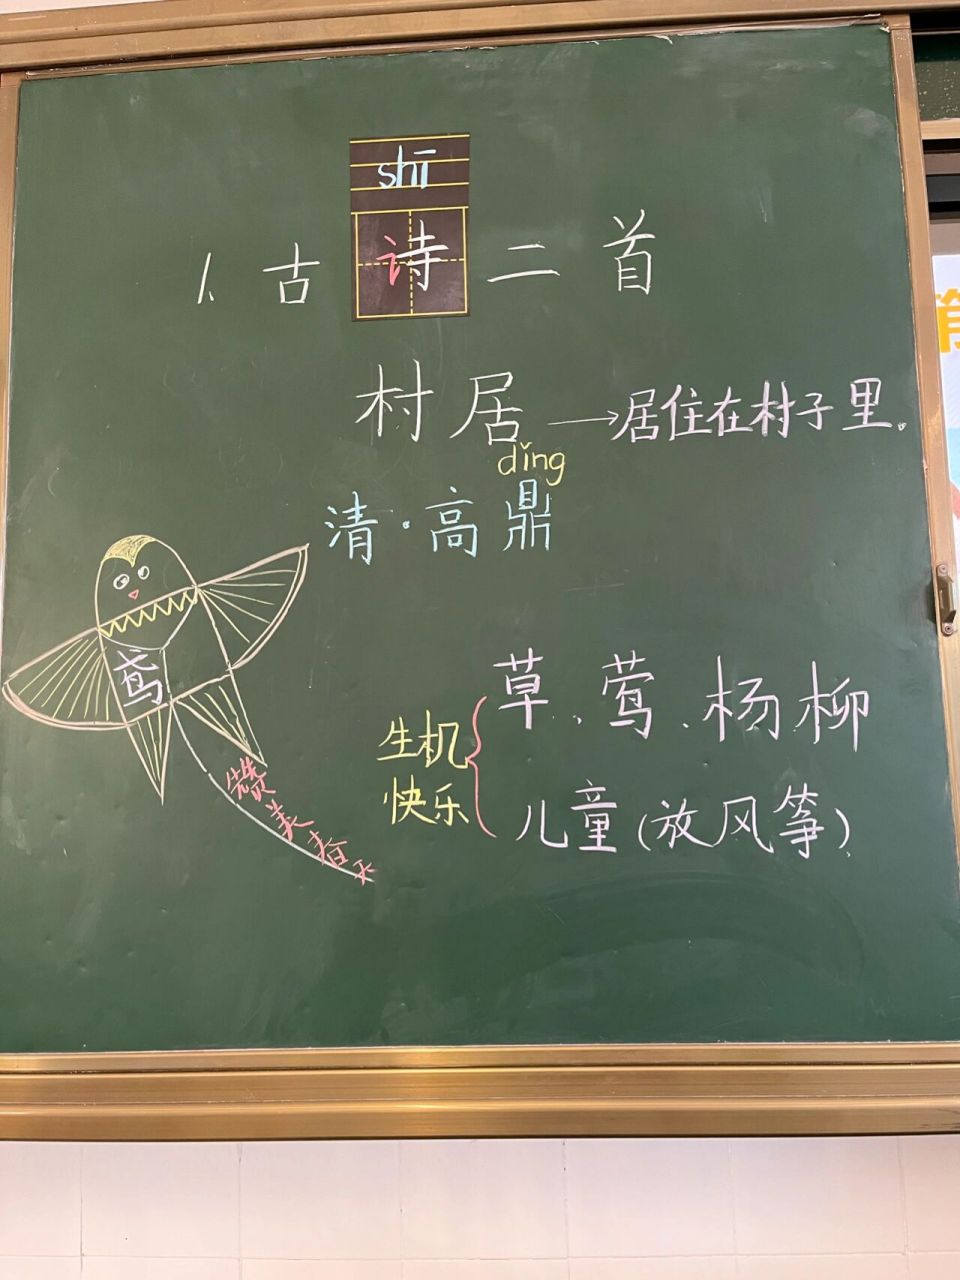 shī
1. 古诗二首
村居→居住在村子里。
dǐng
清·高鼎
鸢
赞美春天
生机
快乐
草、莺、杨柳
儿童(放风筝)